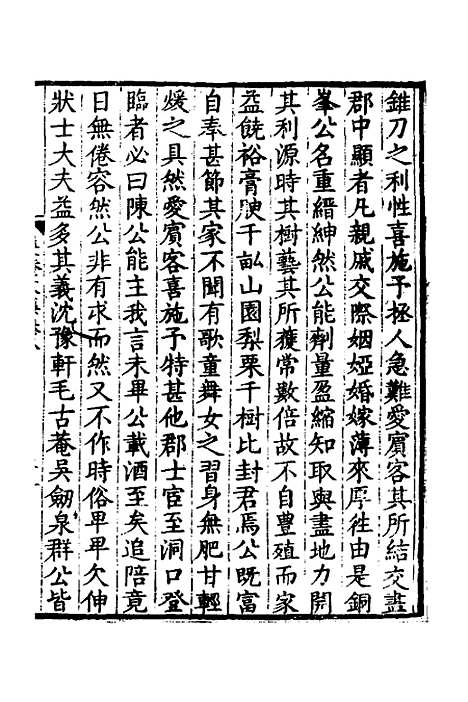 錐刀之利性喜施予拯人急難愛賓客其所結交盡
郡中顯者凡親戚交際姻婭婚嫁薄來厚往由是銅
峯公名重縉紳然公能劑量盈縮知取與盡地力開
其利源時其樹藝其所獲常數倍故不自豊殖而家
益饒裕膏腴千畝山園梨栗千樹比封君焉公既富
自奉甚節其家不聞有歌童舞女之習身無肥甘輕
煖之具然愛賓客喜施予特甚他郡士宦至洞口登
臨者必曰陳公能主我言未畢公載酒至矣追陪竟
日無倦容然公非有求而然又不作時俗卑卑欠伸
狀士大夫益多其義沈豫軒毛古菴吳劒泉群公皆